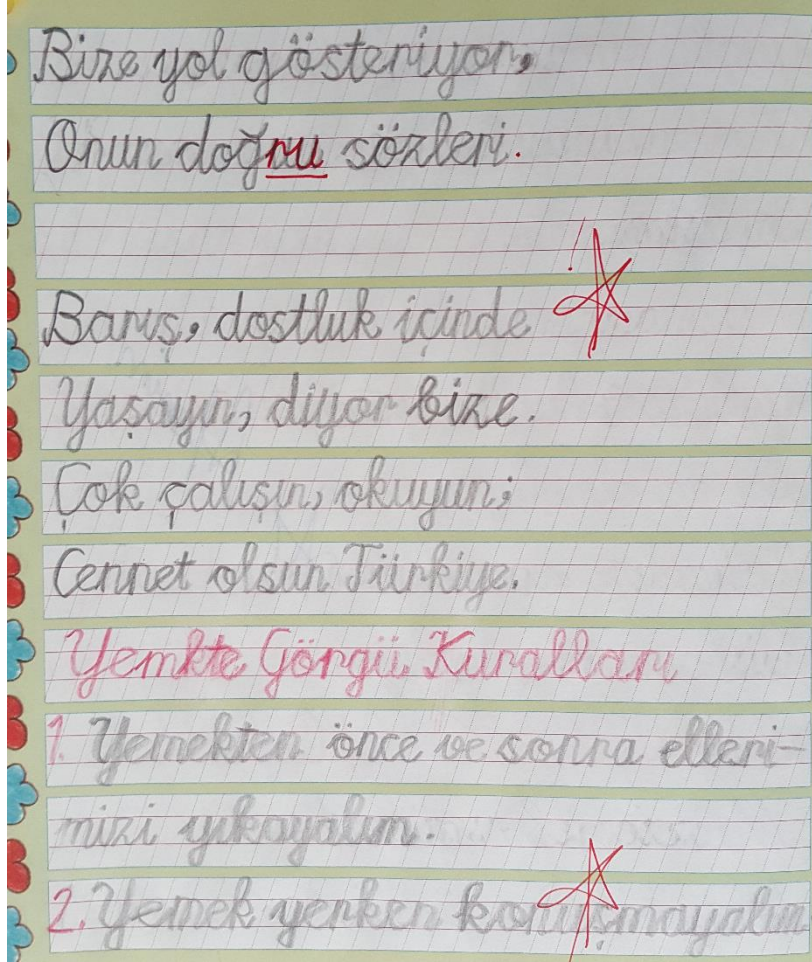 Bize yol gösteriyor,
Onun doğru sözleri.
Barış, dostluk içinde
Yaşayın, diyor bize.
Çok çalışın, okuyun;
Cennet olsun Türkiye.
Yemkte Görgü Kuralları
1. Yemekten önce ve sonra elleri-
mizi yıkayalım.
2. Yemek yerken konuşmayalım